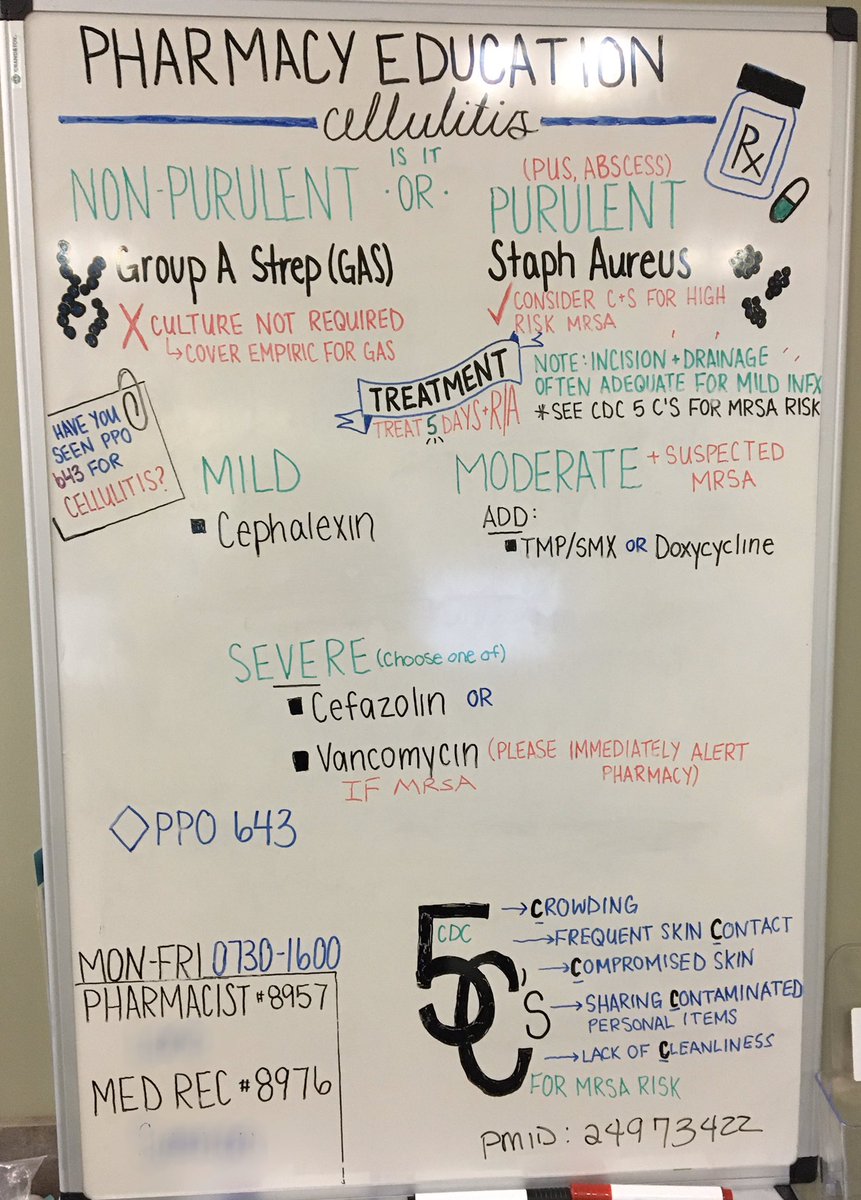 PHARMACY EDUCATION
cellulitis
Rx
NON-PURULENT
IS IT
·OR·
(PUS, ABSCESS)
PURULENT
Group A Strep (GAS)
X CULTURE NOT REQUIRED
↳COVER EMPIRIC FOR GAS
Staph Aureus
✓ CONSIDER C+S FOR HIGH
RISK MRSA
NOTE: INCISION + DRAINAGE
OFTEN ADEQUATE FOR MILD INFX
*SEE CDC 5 C'S FOR MRSA RISK
TREATMENT
TREAT 5 DAYS + R/A
HAVE YOU
SEEN PPO
643 FOR
CELLULITIS?
MILD
▪ Cephalexin
MODERATE + SUSPECTED
MRSA
ADD:
▪ TMP/SMX OR Doxycycline
SEVERE (Choose one of)
▪ Cefazolin OR
▪ Vancomycin (PLEASE IMMEDIATELY ALERT
PHARMACY)
IF MRSA
◇PPO 643
MON-FRI 0730-1600
PHARMACIST #8957
MED REC #8976
5 C's
CDC
→CROWDING
→FREQUENT SKIN CONTACT
→COMPROMISED SKIN
→SHARING CONTAMINATED
PERSONAL ITEMS
→LACK OF CLEANLINESS
FOR MRSA RISK
PMID: 24973422